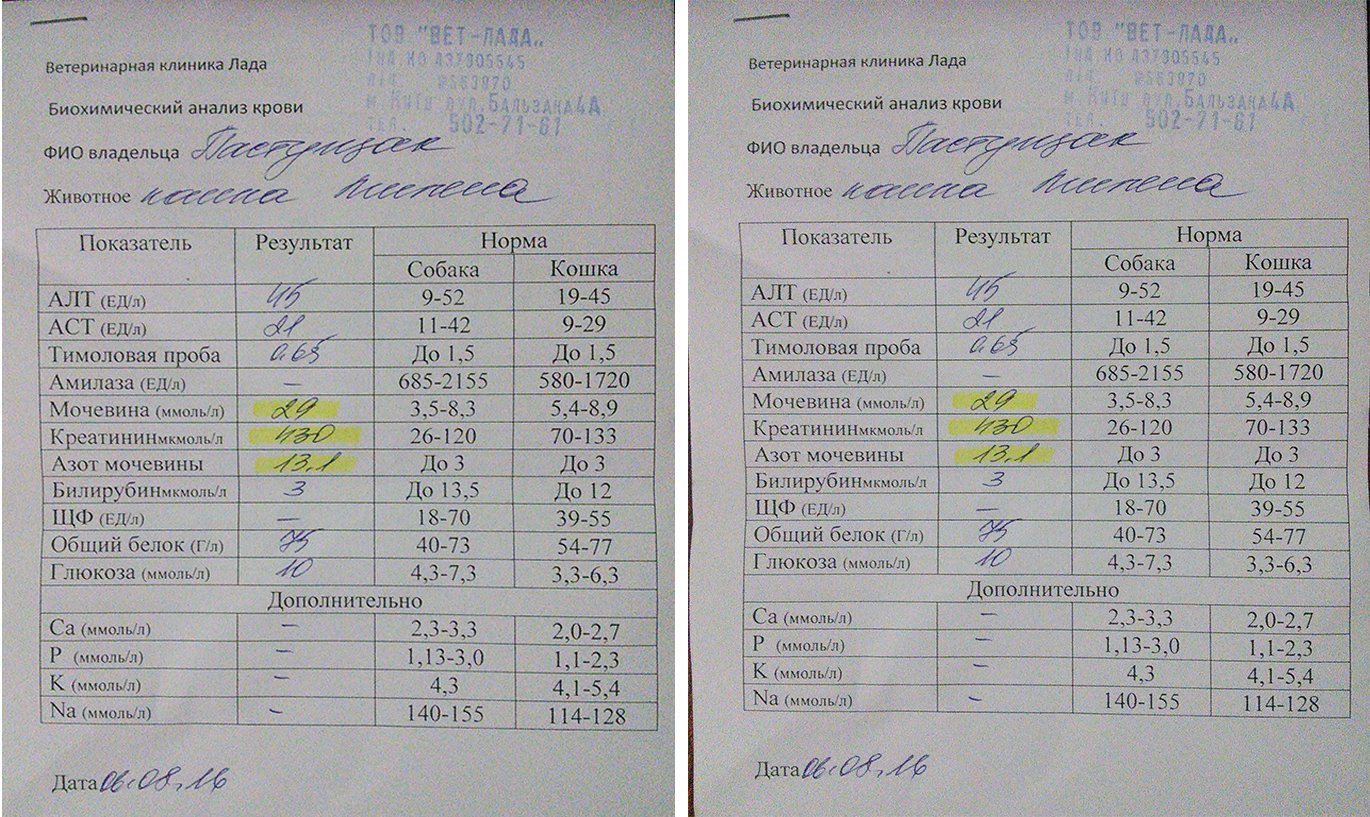 ТОВ "ВЕТ-ЛАДА"
Ветеринарная клиника Лада
м. Київ вул. Бальзака 4А
Биохимический анализ крови
502-71-61
ФИО владельца
Животное кошка
Показатель Результат Норма
Собака Кошка
АЛТ (ЕД/л) 45 9-52 19-45
АСТ (ЕД/л) 21 11-42 9-29
Тимоловая проба 0.65 До 1,5 До 1,5
Амилаза (ЕД/л) — 685-2155 580-1720
Мочевина (ммоль/л) 29 3,5-8,3 5,4-8,9
Креатининмкмоль/л 430 26-120 70-133
Азот мочевины 13,1 До 3 До 3
Билирубинмкмоль/л 3 До 13,5 До 12
ЩФ (ЕД/л) — 18-70 39-55
Общий белок (Г/л) 75 40-73 54-77
Глюкоза (ммоль/л) 10 4,3-7,3 3,3-6,3
Дополнительно
Ca (ммоль/л) — 2,3-3,3 2,0-2,7
P (ммоль/л) — 1,13-3,0 1,1-2,3
K (ммоль/л) — 4,3 4,1-5,4
Na (ммоль/л) — 140-155 114-128
Дата 06.08.16
ТОВ "ВЕТ-ЛАДА"
Ветеринарная клиника Лада
м. Київ вул. Бальзака 4А
Биохимический анализ крови
502-71-61
ФИО владельца
Животное кошка
Показатель Результат Норма
Собака Кошка
АЛТ (ЕД/л) 45 9-52 19-45
АСТ (ЕД/л) 21 11-42 9-29
Тимоловая проба 0.65 До 1,5 До 1,5
Амилаза (ЕД/л) — 685-2155 580-1720
Мочевина (ммоль/л) 29 3,5-8,3 5,4-8,9
Креатининмкмоль/л 430 26-120 70-133
Азот мочевины 13,1 До 3 До 3
Билирубинмкмоль/л 3 До 13,5 До 12
ЩФ (ЕД/л) — 18-70 39-55
Общий белок (Г/л) 75 40-73 54-77
Глюкоза (ммоль/л) 10 4,3-7,3 3,3-6,3
Дополнительно
Ca (ммоль/л) — 2,3-3,3 2,0-2,7
P (ммоль/л) — 1,13-3,0 1,1-2,3
K (ммоль/л) — 4,3 4,1-5,4
Na (ммоль/л) — 140-155 114-128
Дата 06.08.16